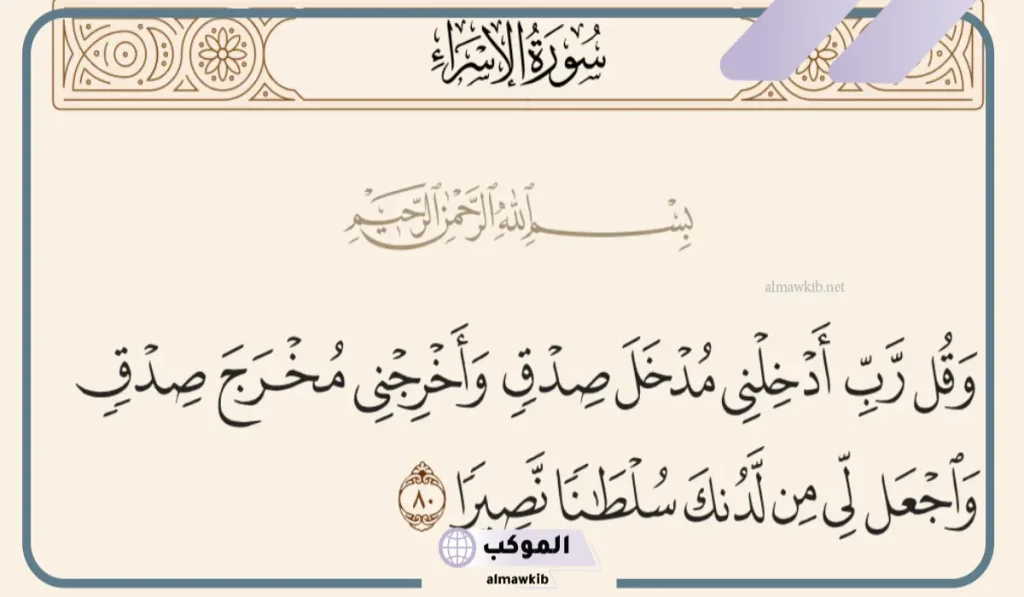 سُورَةُ الإِسْرَاءِ
بِسْمِ ٱللَّهِ ٱلرَّحْمَٰنِ ٱلرَّحِيمِ
almawkib.net
وَقُل رَّبِّ أَدْخِلْنِى مُدْخَلَ صِدْقٍ وَأَخْرِجْنِى مُخْرَجَ صِدْقٍ
وَٱجْعَل لِّى مِن لَّدُنكَ سُلْطَٰنًا نَّصِيرًا ٨٠
الموكب
almawkib